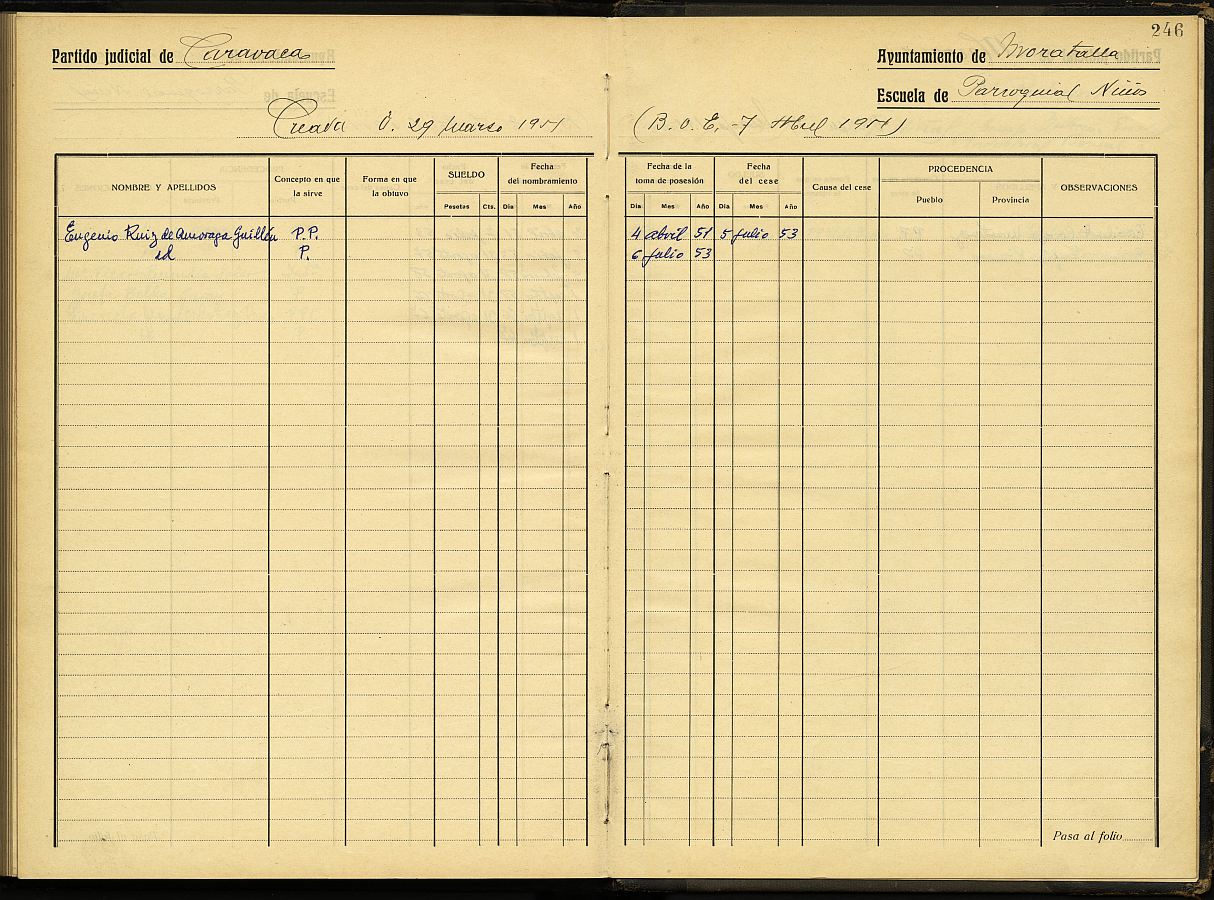 246
Partido judicial de Caravaca
Ayuntamiento de Moratalla
Escuela de Parroquial Niños
Creada O. 29 Marzo 1951 (B. O. E. -7 Abril 1951)
NOMBRE Y APELLIDOS
Concepto en que la sirve
Forma en que la obtuvo
SUELDO
Pesetas Cts.
Fecha del nombramiento
Dia Mes Año
Fecha de la toma de posesión
Dia Mes Año
Fecha del cese
Dia Mes Año
Causa del cese
PROCEDENCIA
Pueblo Provincia
OBSERVACIONES
Eugenio Ruiz de Amoraga Guillén P.P. 4 abril 51 5 julio 53
id P. 6 julio 53
Pasa al folio